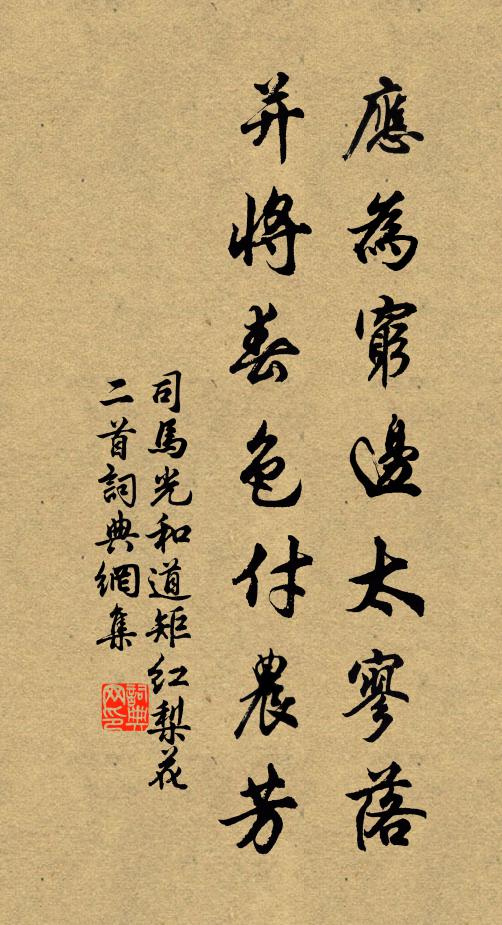 應為窮邊太寥落
并將春色付農芳
司馬光和道矩紅梨花
二首詞典網集
詞典
网印